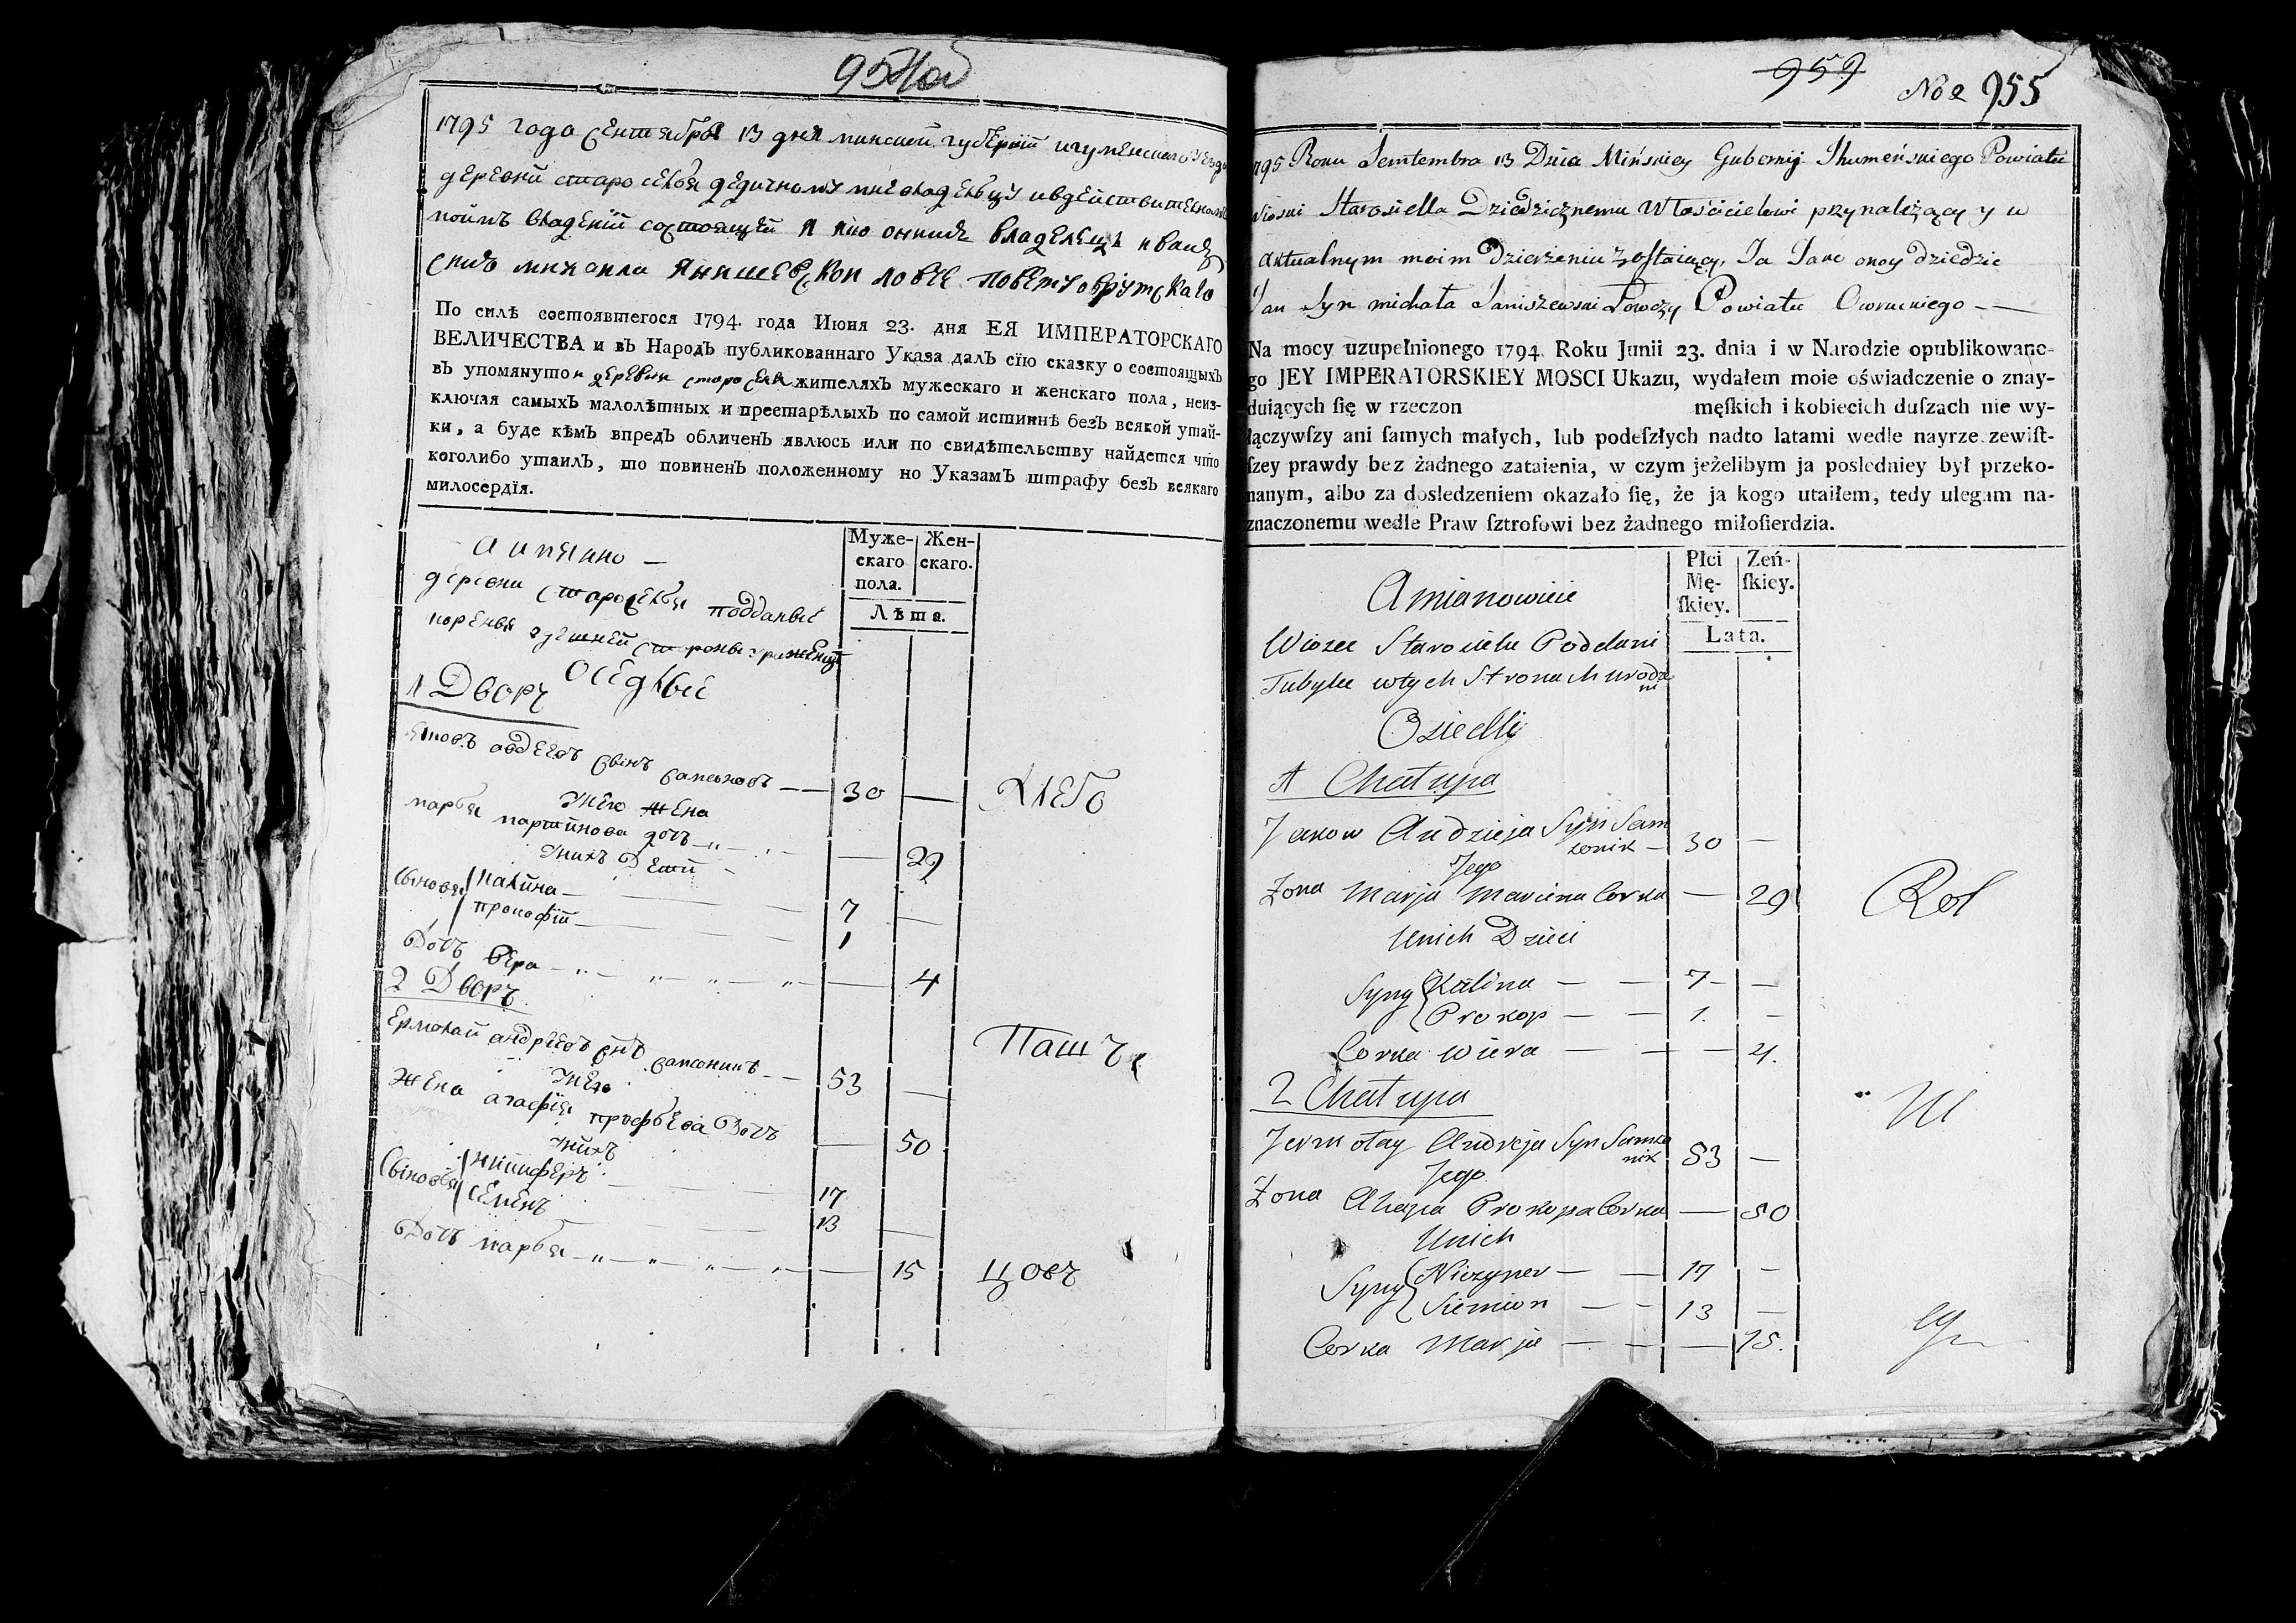 1795 года сентября 13 дня минской губернїй игуменского уезда
деревни староселья дедичному мне владельцу ивдействительном
моимъ владенїй состоящей я яко оникиде владелецъ иванъ
снъ михаила янишевской ловче поветуоврутскаго
По силѣ состоявшегося 1794. года Июня 23. дня ЕЯ ИМПЕРАТОРСКАГО
ВЕЛИЧЕСТВА и въ Народъ публикованнаго Указа далъ сїю сказку о состоящыхъ
въ упомянутои деревни староселя жителяхъ мужескаго и женскаго пола, неиз-
ключая самыхъ малолѣтныхъ и престарѣлыхъ по самой истиннѣ безъ всякой утай-
ки, а буде кѣмъ впредъ обличенъ явлюсь или по свидѣтельству найдется что
коголибо утаилъ, то повиненъ положенному по Указамъ штрафу безъ всякаго
милосердїя.
Муже- Жен-
скаго скаго.
пола.
Лѣта.
Аимянно —
деревни староселья подданые
коренья здешней стороны урожены
оседлые
1 Дворъ
яковъ авдеевъ сынъ самсоновъ — 30 — ХЛЕБО
унего жена
марья мартинова дочъ — 29
унихъ дети
сыновья калина — 7 —
прокофїй — 1
дочъ вера — 4
2 Дворъ
Ермолай андреевъ снъ самсоникъ — 53 — Пашъ
унего
жена агафїя прокофьева дочъ — 50
унихъ
сыновья никиферъ — 17
семенъ — 13 —
дочъ марья — 15 цовъ
959 No 2 955
1795 Roku Semtembra 13 Dnia Mińskiey Gubernij Ihumeńskiego Powiatu
Wioski Starosiella Dziedzicznemu Włościcielowi przynależący y w
aktualnym moim Dzierżeniu zostaiący, Ja Jako onoy dziedzic
Jan Syn michała Janiszewski Łowczy Powiatu Owruckiego —
Na mocy uzupełnionego 1794. Roku Junii 23. dnia i w Narodzie opublikowane-
go JEY IMPERATORSKIEY MOSCI Ukazu, wydałem moie oświadczenie o znay-
duiących ſię w rzeczon męſkich i kobiecich duſzach nie wy-
łączywſzy ani ſamych małych, lub podeſzłych nadto latami wedle nayrzezewiſt-
ſzey prawdy bez żadnego zataienia, w czym jeżelibym ja posledniey był przeko-
nanym, albo za dosledzeniem okazało ſię, że ja kogo utaiłem, tedy ulegam na-
znaczonemu wedle Praw ſztrofowi bez żadnego miłoſierdzia.
Płci Zeń-
Mę- ſkiey.
ſkiey.
Lata.
Amianowicie
Wiozce Starosielu Poddani
Tubylce wtych Stronach urodze
ni
Osiedli
1 Chałupa
Jakow Audzieja Syn Sam
sonik — 30 —
Jego
Zona Marja Marcina Corka — 29 Rol
Unich Dzieci
Syny Kalina — 7 —
Prokop — 1. —
Corka Wiera — 4.
2 Chałupa
Jermołay Andreja Syn Samso
nik 53 — ni
Jego
Zona Ahapa Prokopa Corka — 50
Unich
Syny Niczyper — 17 —
Siemion — 13 —
Corka Marja — 15. cy